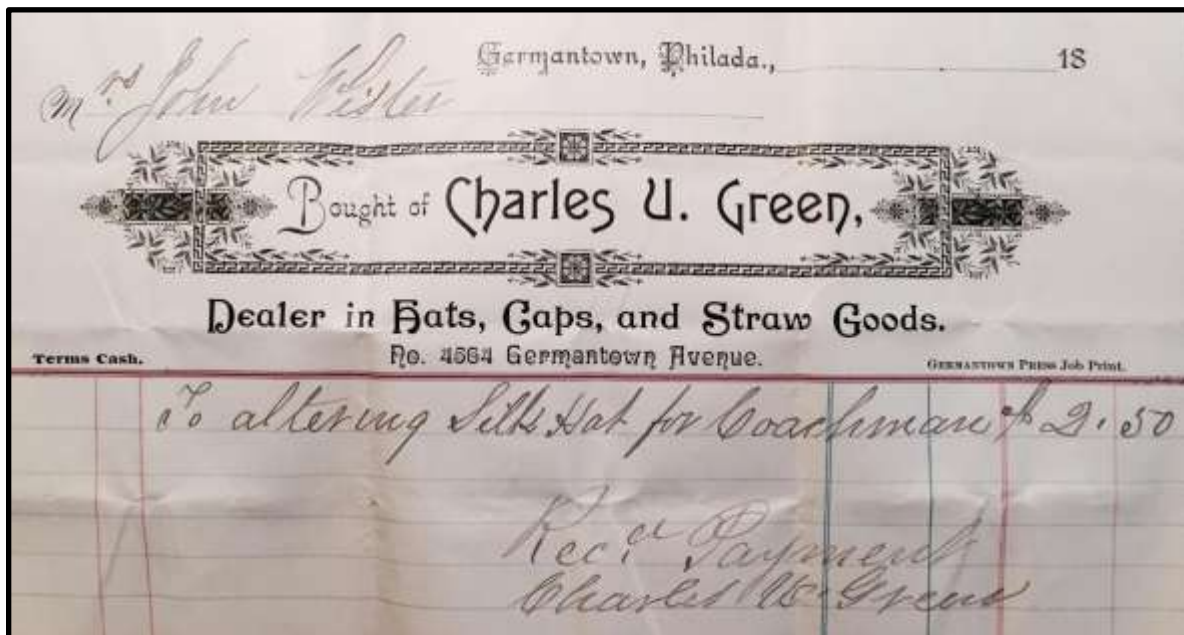 Germantown, Philada., 18
Mrs John Wister
Bought of Charles U. Green,
Dealer in Hats, Caps, and Straw Goods.
No. 4564 Germantown Avenue.
Terms Cash.
Germantown Press Job Print.
To altering Silk Hat for Coachman $2.50
Recd Payment
Charles U. Green